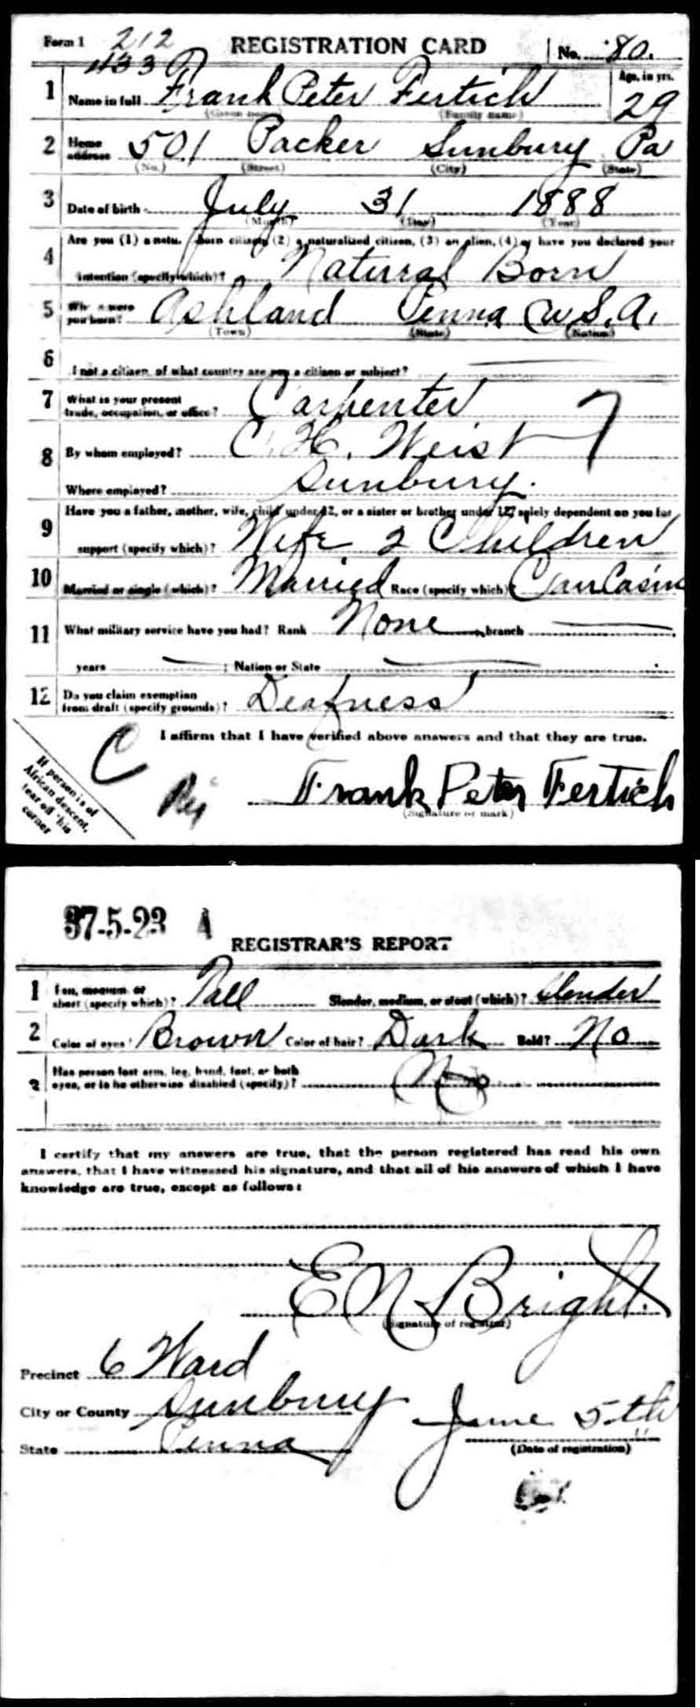 Form 1 212 REGISTRATION CARD No. 80.
433
1 Name in full Frank Peter Fertich Age, in yrs. 29
(Given name) (Family name)
2 Home address 501 Packer Sunbury Pa
(No.) (Street) (City) (State)
3 Date of birth July 31 1888
(Month) (Day) (Year)
4 Are you (1) a natural born citizen, (2) a naturalized citizen, (3) an alien, (4) or have you declared your
intention (specify which)? Naturral Born
5 Where were you born? Ashland Penna U.S.A.
(Town) (State) (Nation)
6 If not a citizen, of what country are you a citizen or subject?
7 What is your present trade, occupation, or office? Carpenter 7
8 By whom employed? C. H. Weist
Where employed? Sunbury.
9 Have you a father, mother, wife, child under 12, or a sister or brother under 12, solely dependent on you for
support (specify which)? Wife 2 Children
10 Married or single (which)? Married Race (specify which)? Caucasin
11 What military service have you had? Rank None branch
years ; Nation or State
12 Do you claim exemption from draft (specify grounds)? Deafness
I affirm that I have verified above answers and that they are true.
C
If person is of African descent, tear off this corner
Frank Peter Fertich
(Signature or mark)
37-5-23 A
REGISTRAR'S REPORT
1 Tall, medium, or short (specify which)? Tall Slender, medium, or stout (which)? Slender
2 Color of eyes? Brown Color of hair? Dark Bald? No
3 Has person lost arm, leg, hand, foot, or both eyes, or is he otherwise disabled (specify)? No
I certify that my answers are true, that the person registered has read his own
answers, that I have witnessed his signature, and that all of his answers of which I have
knowledge are true, except as follows:
E N Bright
(Signature of registrar)
Precinct 6 Ward
City or County Sunbury June 5th
State Penna (Date of registration)